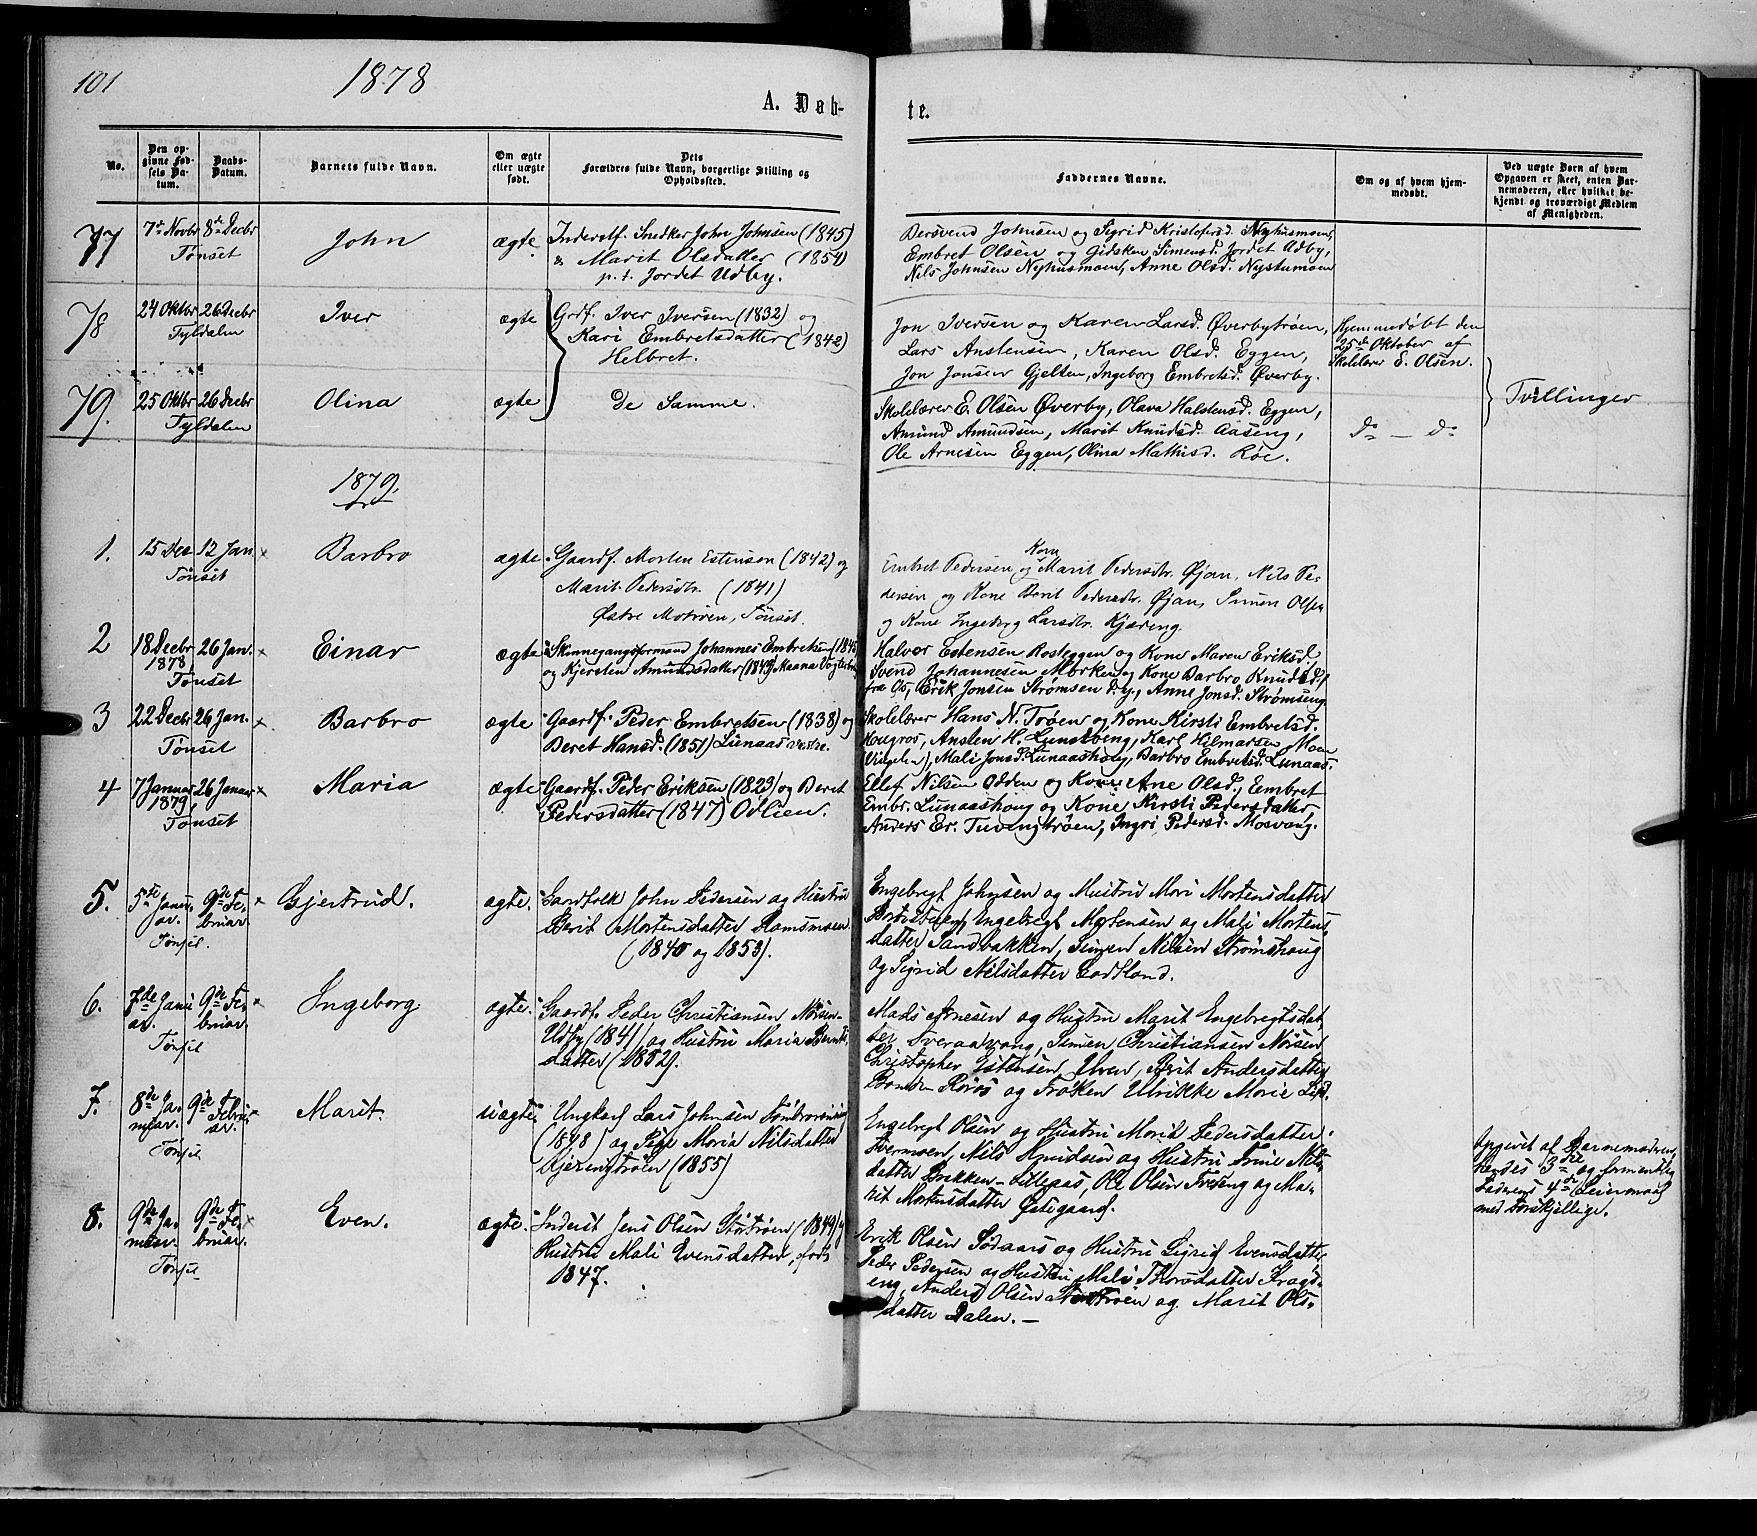 101
1878
A. Døb-
te.
No.
Den op-
givne Fød-
sels Da-
tum.
Daabs-
Datum.
Barnets fulde Navn.
Om ægte
eller uægte
født.
Dets
Forældres fulde Navn, borgerlige Stilling og
Opholdssted.
Faddernes Navne.
Om og af hvem hjem-
medøbt.
Ved uægte Børn af hvem
Opgaven er skeet, enten Bar-
nemoderen, eller hvilket be-
kjendt og troværdigt Medlem
af Menigheden.
77
7de Novbr 8de Decbr
Tønset
John
ægte
Inderstf. Snedker John Johnsen (1845)
& Marit Olsdatter (1854)
p. t. Jordet Udby.
Bersvend Johnsen og Sigrid Kristofersd. Nyhusmoen,
Embret Olsen og Gidsken Simensd. Jordet Udby,
Nils Johnsen Nyhusmoen, Anne Olsd. Nystumoen
78
24 Oktbr 26 Decbr
Tyldalen
Iver
ægte
Grdf. Iver Iversen (1832) og
Kari Embretsdatter (1842)
Helbret.
Jon Iversen og Karen Larsd. Øverbytrøen,
Lars Anstensen, Karen Olsd. Eggen,
Jon Jonsen Gjelten, Ingeborg Embretsd. Øverby.
Hjemmedøbt den
25de Oktober af
Skolelærer E. Olsen.
79.
25 Oktbr 26 Decbr
Tyldalen
Olina
ægte
De Samme.
Skolelærer E. Olsen Øverby, Olava Halstensd. Eggen,
Amund Amundsen, Marit Knudsd. Aaseng,
Ole Arnesen Eggen, Olina Mathisd. Røe.
do — do
Tvillinger
1879.
1.
15 Dec 12 Jan.
Tønset
Barbro
ægte
Gaardf. Morten Estensen (1842) og
Marit Pedersdtr. (1841)
Østre Motrøen, Tønset.
Embret Pedersen og Kone Marit Pedersdtr. Øjan, Nils Pe-
dersen og Kone Berit Pedersdtr. Øjan, Simen Olsen
og Kone Ingeborg Larsdtr. Kjæreng.
2
18 Decbr 26 Jan.
1878
Tønset
Einar
ægte
Skinnegangsformand Johannes Embretsen (1845)
og Kjersten Amundsdatter (1849)
Halvor Estensen Rosteggen og Kone Maren Eriksd.
Svend Johannesen Mørken og Kone Barbro Knudsd.
fra Os, Erik Jonsen Strømsen d. y., Anne Jonsd. Strømseng
3
22 Decbr 26 Jan.
Tønset
Barbro
ægte
Gaardf. Peder Embretsen (1838) og
Beret Hansd. (1851) Lunaas vestre.
Skolelærer Hans N. Trøen og Kone Kirsti Embretsd.
Kurøs, Ansten H. Lunaseng, Karl Hilmarsen Moen
(Vingelen), Mali Jonsd. Lunaashoug, Barbro Embretsd. Lunaas.
4
7 Januar 26 Januar
1879
Tønset
Maria
ægte
Gaardf. Peder Eriksen (1823) og Beret
Pedersdatter (1847) Odlien.
Ellef Nilsen Odden og Kone Ane Olsd., Embret
Embr. Lunaashoug og Kone Kirsti Pedersdatter,
Anders Er. Tuvengtrøen, Ingri Pedersd. Mosvang.
5.
5te Janu- 9de Fe-
ar. bruar.
Tønset.
Gjertrud.
ægte.
Gardfolk John Pedersen og Hustru
Berit Mortensdatter Ramsmoen
(1840 og 1853).
Engebregt Johnsen og Hustru Mari Mortensdatter
Engebregt Mortensen og Mali Mortens-
datter Sandbakken, Simen Nilsen Strømshoug
og Sigrid Nilsdatter Godtland.
6.
7de Janu- 9de Fe-
ar. bruar.
Tønset
Ingeborg
ægte.
Gaardf. Peder Christiansen Nørsen-
Udby (1841) og Hustru Maria Berntz-
datter (1852).
Mads Arnesen og Hustru Marit Engebregtsdat-
ter Tveraavang, Simen Christiansen Nørsen
Christopher Estensen Elven, Berit Andersdatter
Røros og Frøken Ulrikke Marie
7.
8de Ja- 9de Febru-
nuar. ar.
Tønset
Marit.
uægte.
Ungkarl Lars Johnsen
(1848) og Pige Maria Nilsdatter
Kjærengtrøen (1855)
Engebregt Olsen og Hustru Marit Pedersdatter
Tvermoen, Nils Knudsen og Hustru Trine Nils-
datter Brekken-Lillegaas, Ole Olsen og Ma-
rit Mortensdatter Østigaard.
Opgivet af Barnemoderen,
hendes 3die og formentlig
Faderens 4de Leiermaal
med forskjellige.
8.
9de Ja- 9de Fe-
nuar. bruar.
Tønset
Even.
ægte.
Inderst Jens Olsen Støtrøen (1849) og
Hustru Mali Evensdatter, født
1847.
Erik Olsen Sødaars og Hustru Sigrid Evensdatter
Peder Pedersen og Hustru Mali Thorsdatter
eng, Anders Olsen Støtrøen og Marit Ols-
datter Dalen. —